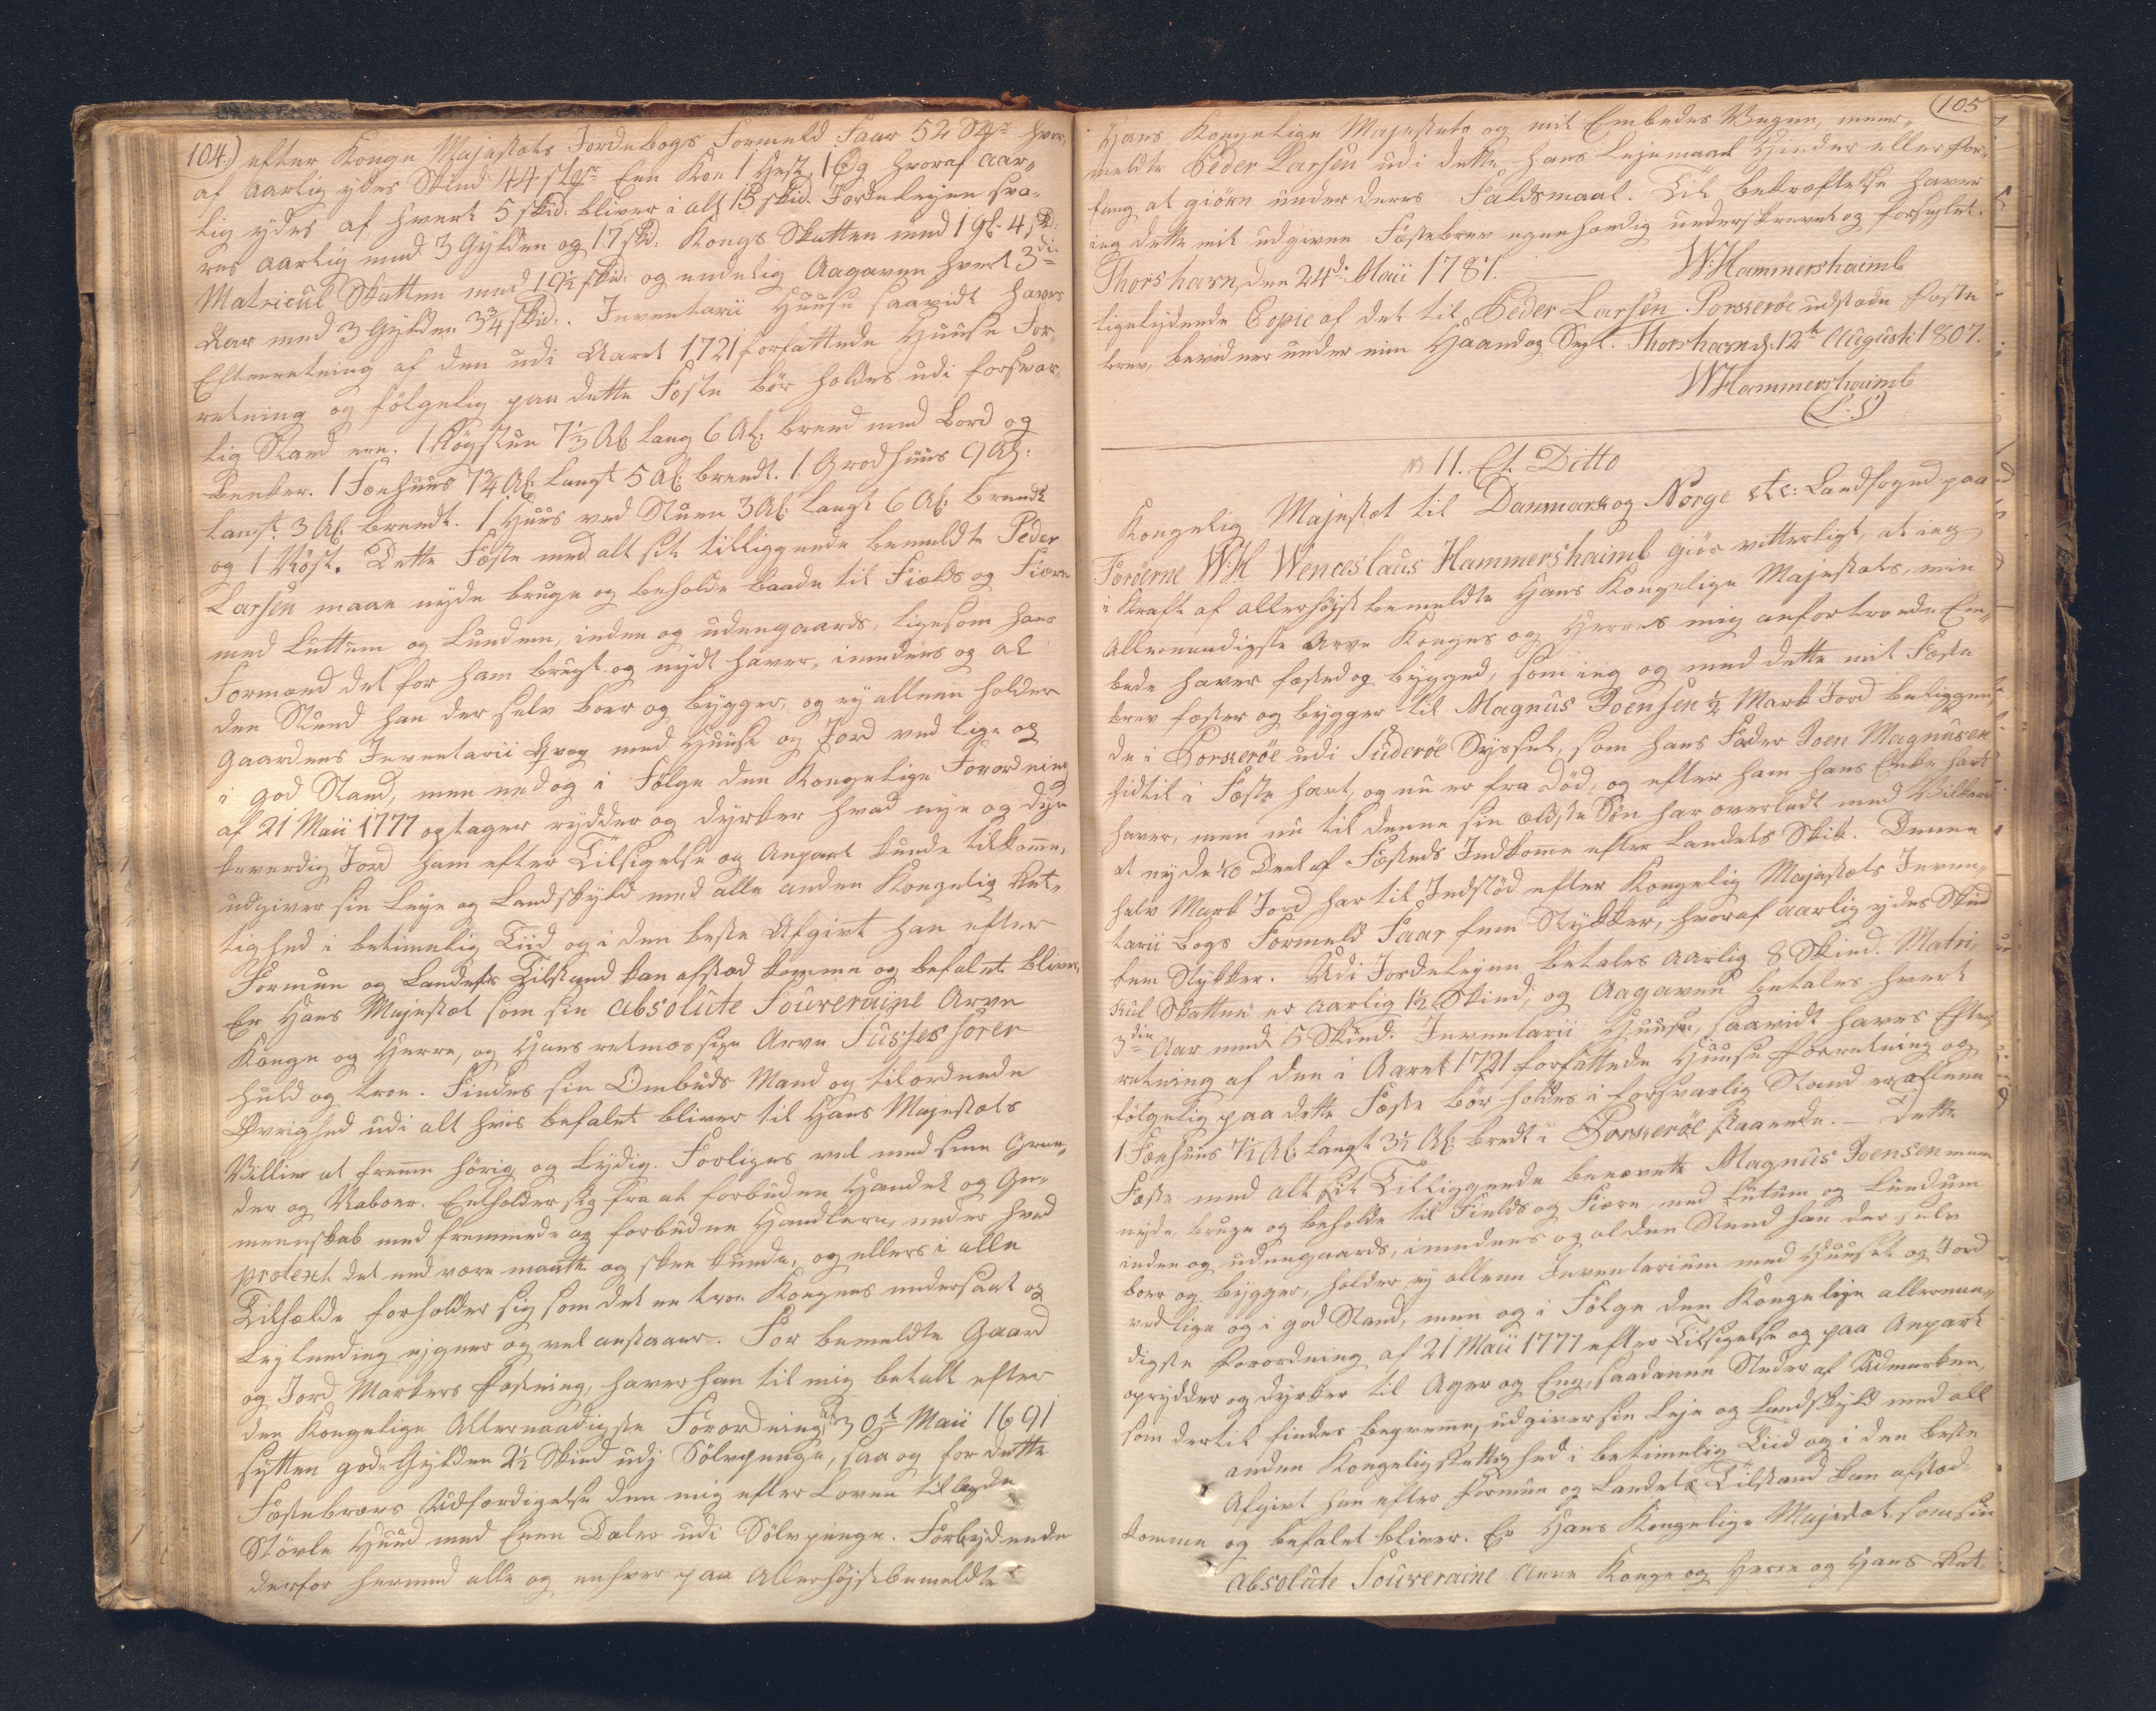 104.) efter Konge Majestæts Jordebogs Formeld Faar 52 St hvor,
af Aarlig ydes Skind 44 st Een Koe 1 Hest, 1 Øg hvoraf aar,,
lig ydes af hvert 5 skid: bliver i alt 15 skid. Jordeleyen sva,
res aarlig med 3 Gylden og 17 skd: Kongs Skatten med 1 gl: 4 sk:
Matricul Skatten med 19½ skd: og endelig Aagaven hvert 3die
Aar med 3 Gylden 3¾ skid.. Inventarii Huuse saavidt haves
Efterretning af den udi Aaret 1721 forfattede Huuse For,
retning og følgelig paa dette Fæste bør holdes udi forsvar,
lig Stand ere. 1 Røgstue 7⅓ Al: lang 6 Al: breed med Bord og
Benker. 1 Fæehuus 7¾ Al: langt 5 Al: breedt. 1 Grodhuus 9 Al:
langt 3 Al: breedt. 1 Huus ved Stuen 3 Al: langt 6 Al: breedt
og 1 Røst. Dette Fæste med alt sit tilliggende bemeldte Peder
Larsen maae nyde bruge og beholde baade til Fields og Fiære
med Luttum og Lundum, inden og udengaards, ligesom hans
Formænd det for ham brugt og nydt haver, imedens og al
den Stund han der selv boer og bygger, og ey alleene holder
Gaardens Inventarii Qvæg med Huuse og Jord ved lige og
i god Stand, men end og i Følge den Kongelige Forordning
af 21 Maii 1777 optager rydder og dyrker hvad nye og dyr,
keværdig Jord ham efter Tilsigelse og Anpart kunde tilkomme,
udgiver sin Leye og Landskyld med alle anden Kongelig Ret,
tighed i betimelig Tiid og i den beste Afgivt han efter
Formue og Landets Tilstand kan afstæd komme og befalet bliver,
Er Hans Majestæt som sin absolute Souveraine Arve
Konge og Herre, og Hans retmæssige Arve Successorer
huld og troe. Findes sin Ombuds Mand og tilordnede
Øvrighed udi alt hvis befalet bliver til Hans Majestæts
Villie at fremme hørig og lydig. Forliges vel med sine Gran,,
der og Naboer. Entholder sig fra at forbuden Handel og Ge,
meenskab med fremmede og forbudne Handlere, under hvad
protext det end være maatte og skee kunde, og ellers i alle
Tilfælde forholder sig som det en troe Kongens undersaat og
Leylending eigner og vel anstaaer. For bemeldte Gaard
og Jord Markers Fæstning, haver han til mig betalt efter
den Kongelige Allernaadigste Forordning af 30te Maii 1691
sytten gode Gylden 2½ Skind udj Sølvpenge, saa og for dette
Fæstebrevs Udfærdigelse den mig efter Loven tillagde
Støvle Huud med Een Daler udi Sølvpenge. Forbydende
derfor hermed alle og enhver paa Allerhøjstbemeldte
105
Hans Kongelige Majestæts og mit Embedes Vegne, meer,,
meldte Peder Larsen udi dette hans Lejemaal Hinder eller For,
fang at giøre under deres Faldsmaal. Til bekræftelse haver
ieg dette mit udgivne Fæstebrev egenhændig underskrevet og forseglet.
Thorshavn, den 24de Maii 1787. WHammershaimb
ligelydende Copie af det til Peder Larsen Porkerøe udstædte Fæste
brev, bevidner under min Haand og Segl. Thorshavn d: 12te Augusti 1807.
WHammershaimb
(L. S.)
N 11. Et Ditto
Kongelig Majestæt til Danmark og Norge etc: Landfoged paa
Færöerne W: H Wenceslaus Hammershaimb giör vitterligt, at ieg
i Kraft af allerhøjst bemeldte Hans Kongelige Majestæts min
Allernaadigste Arve Konges og Herres mig anfortroede Em,,
bede haver fæsted og bygged, som ieg og med dette mit Fæste
brev fæster og bygger til Magnus Joensen ½ Mark Jord beliggen,
de i Porkerøe udi Suderøe Syssel, som hans Fader Joen Magnusen
hidtil i Fæste havt, og nu er fra død, og efter ham hans Enke havt
haver, men nu til denne sin ældste Søn har overladt med Vilkaar
at nyde 1/10 Deel af Fæsteds Indkome efter Landets Skik. Denne
halv Mark Jord har til Indstød efter Kongelig Majestæts Inven,
tarii Bogs Formeld Faar fem Stykker, hvoraf aarlig ydes Skind
fem Stykker. Udi Jordeleyen betales aarlig 8 Skind. Matri,
kul Skatten er aarlig 1½ Skind, og Aagaven betales hvert
3die Aar med 5 Skind. Inventarii Huuse, saavidt haves Efter,
retning af den i Aaret 1721 forfattede Huuse Forretning og
følgelig paa dette Fæste bør holdes i forsvarlig Stand er alleene
1 Fæehuus 7½ Al: langt 3½ Al: bredt i Porkerøe staaende. — Dette
Fæste med alt sit Tilliggende benævnte Magnus Joensen maa
nyde bruge og beholde til Fields og Fiære, med Lutum og Lundum
inden og udengaards, imedens og al den Stund han der selv
boer og bygger, holder ey alleene Inventarium med Huuset og Jord
ved lige og i god Stand, men og i Følge den Kongelige allernaa,,
digste Forordning af 21 Maii 1777 efter Tilsigelse og paa Anpart
oprydder og dyrker til Ager og Eng, saadanne Steder af Udmarken,
som dertil findes beqvemme, udgiver sin Leje og Landskyld med all
anden Kongelig Rettighed i betimelig Tiid og i den beste
Afgivt han efter Formue og Landets Tilstand kan afstæd
komme og befalet bliver. Er Hans Kongelige Majestæt som sin
absolute Souveraine Arve Konge og Herre og Hans Ret